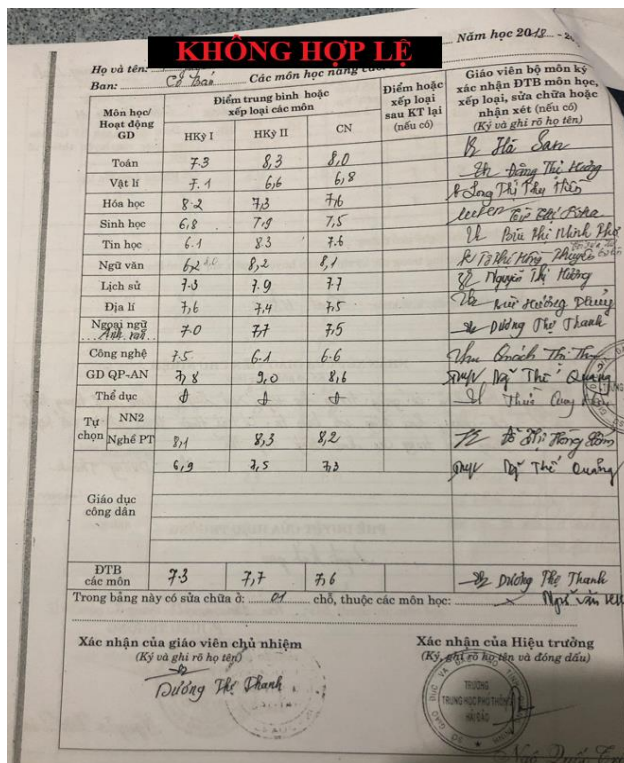 KHÔNG HỢP LỆ
Năm học 2018
Họ và tên:
Ban: Cơ Bản Các môn học nâng cao:
Môn học/ Hoạt động GD
Điểm trung bình hoặc xếp loại các môn
HKỳ I HKỳ II CN
Điểm hoặc xếp loại sau KT lại (nếu có)
Giáo viên bộ môn ký xác nhận ĐTB môn học, xếp loại, sửa chữa hoặc nhận xét (nếu có)
(Ký và ghi rõ họ tên)
Toán 7.3 8,3 8,0 Hà San
Vật lí 7.1 6,6 6,8 Đặng Thị Hương
Hóa học 8.2 7,3 7,6
Sinh học 6,8 7,9 7,5
Tin học 6.1 8.3 7.6 Bùi Thị Minh
Ngữ văn 8,0 8,2 8,1
Lịch sử 7.3 7.9 7.7 Nguyễn Thị Hương
Địa lí 7,6 7,4 7,5
Ngoại ngữ Anh văn 7.0 7,7 7,5 Dương Thị Thanh
Công nghệ 7.5 6.1 6.6 Quách Thị
GD QP-AN 7,8 9,0 8,6 Ngô Thế Quảng
Thể dục Đ Đ Đ
Tự chọn
NN2
Nghề PT 8,1 8,3 8,2
6,9 7,5 7,3 Ngô Thế Quảng
Giáo dục công dân
ĐTB các môn 7.3 7,7 7,6 Dương Thị Thanh
Trong bảng này có sửa chữa ở: 01 chỗ, thuộc các môn học: Ngữ văn
Xác nhận của giáo viên chủ nhiệm
(Ký và ghi rõ họ tên)
Dương Thị Thanh
Xác nhận của Hiệu trưởng
(Ký, ghi rõ họ tên và đóng dấu)
TRƯỜNG
TRUNG HỌC PHỔ THÔNG
HẢI ĐẢO